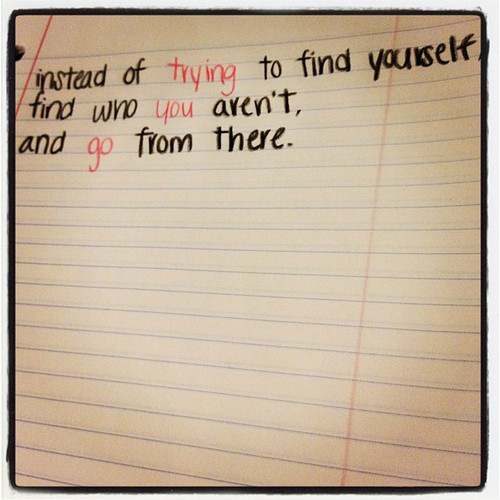 instead of trying to find yourself,
find who you aren't,
and go from there.